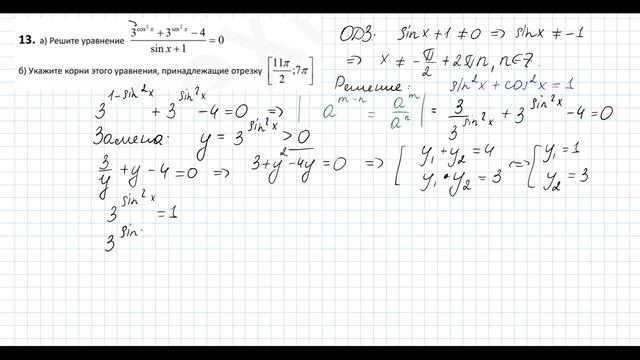 13. а) Решите уравнение (3^(cos² x) + 3^(sin² x) − 4)/(sin x + 1) = 0
б) Укажите корни этого уравнения, принадлежащие отрезку [11π/2; 7π]
ОДЗ: sin x + 1 ≠ 0 ⇒ sin x ≠ −1
⇒ x ≠ −π/2 + 2πn, n∈Z.
Решение: sin²x + cos²x = 1
3^(1−sin²x) + 3^(sin²x) − 4 = 0 ⇒ | a^(m−n) = a^m/a^n | = 3/3^(sin²x) + 3^(sin²x) − 4 = 0
Замена: y = 3^(sin²x) > 0
3/y + y − 4 = 0 ⇒ 3 + y² − 4y = 0 ⇒ { y₁ + y₂ = 4 ⇒ { y₁ = 1
y₁ · y₂ = 3 y₂ = 3
3^(sin²x) = 1
3^(sin